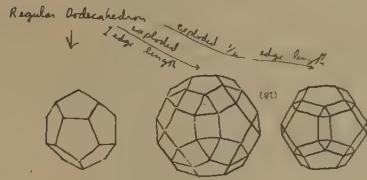 Regular Dodecahedron
exploded
1 edge length
exploded 1/2 edge length